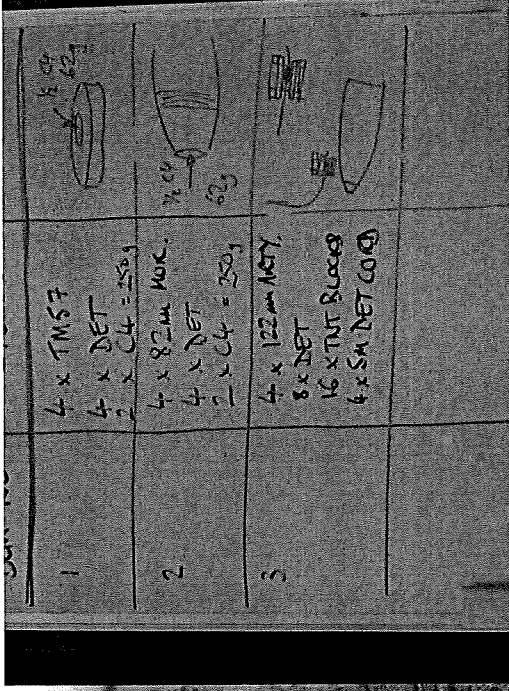 1
4 x TM57
4 x DET
2 x C4 = 250g
½ C4
62g
2
4 x 82mm MOR.
4 x DET
2 x C4 = 250g
½ C4
62g
3
4 x 122mm ARTY.
8 x DET
16 x TNT BLOCKS
4 x 5M DET CORD